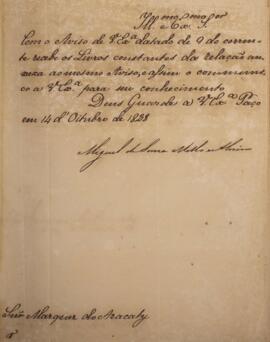 Illmo. e Exmo. Snr.
Com o Aviso de V. Exª datado de 9 do corren-
te recebo os Livros constantes da relação an-
nexa ao mesmo Aviso, e assim o communi-
co a V. Exª para seu conhecimento
Deus Guarde a V. Exª Paço
em 14 d'Outubro de 1828
Miguel de Souza Mello e Alvim
Snr Marquez do Aracaty